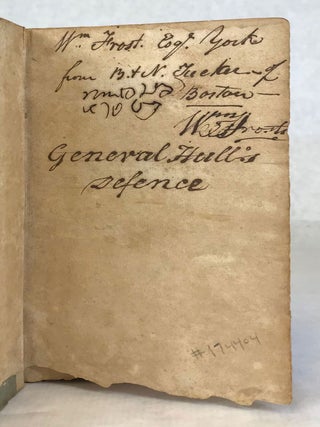 Wm Frost. Esqr. York
from B. & N. Tucker of
Boston
Wm Frosts
General Hull's
Defence
#174404